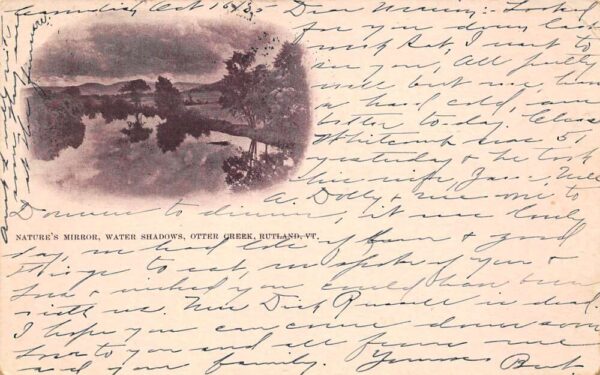 Oct 16/05 Dear Looked
for you down last
week but, I want to
see you, All pretty
well but me, have
a hard cold, am
better today.
Whitcomb was 51
yesterday & he took
his wife, Jane, Will
A. Dolly & me one to
Downer to dinner, it was lovely
NATURE'S MIRROR, WATER SHADOWS, OTTER CREEK, RUTLAND, VT.
day, we had lots of fun & good
things to eat, we spoke of you &
& wished you could have been
with us. Mrs Dick Russell is dead.
I hope you can come down soon
Love to you and all from me
and your family. Yours Bert.